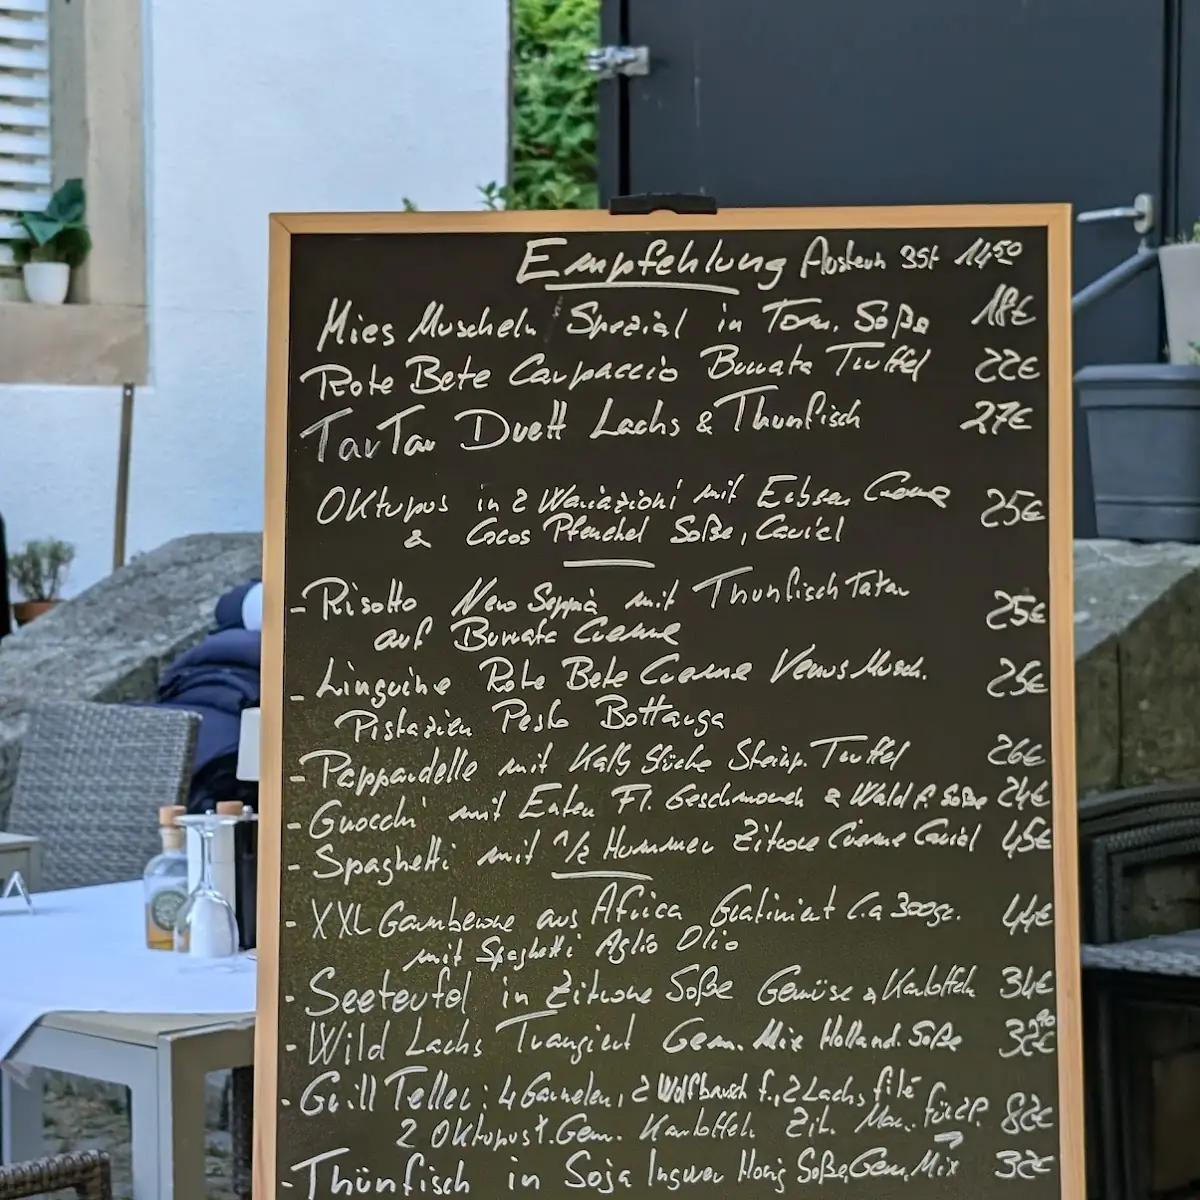 Empfehlung Austern 3St 14,50
Mies Muscheln Spezial in Tom. Soße 18€
Rote Bete Carpaccio Burrata Trüffel 22€
TarTar Duett Lachs & Thunfisch 27€
Oktopus in 2 Wariazioni mit Erbsen Creme 25€
& Cocos Pfenchel Soße, Caviel
- Risotto Nero Seppia mit Thunfisch Tatar 25€
auf Burrata Creme
- Linguine Rote Bete Creme Venus Musch. 25€
Pistazien Pesto Bottarga
- Pappardelle mit Kalb Stücke Steinp. Trüffel 26€
- Gnocchi mit Enten Fl. Geschmorrch & Wald P. Soße 24€
- Spaghetti mit 1/2 Hummer Zitrone Creme Caviel 45€
- XXL Gamberone aus Africa Gratiniert C.a 300gr. 44€
mit Spaghetti Aglio Olio
- Seeteufel in Zitrone Soße Gemüse & Kartoffeln 34€
- Wild Lachs Trangiert Gem. Mix Holland. Soße 32,90€
- Grill Teller: 4 Garnelen, 2 Wolfbarsch f., 2 Lachs filé
2 Oktopus t. Gem. Kartoffeln Zit. für 2P. 82€
- Thünfisch in Soja Ingwer Honig Soße, Gem. Mix 32€